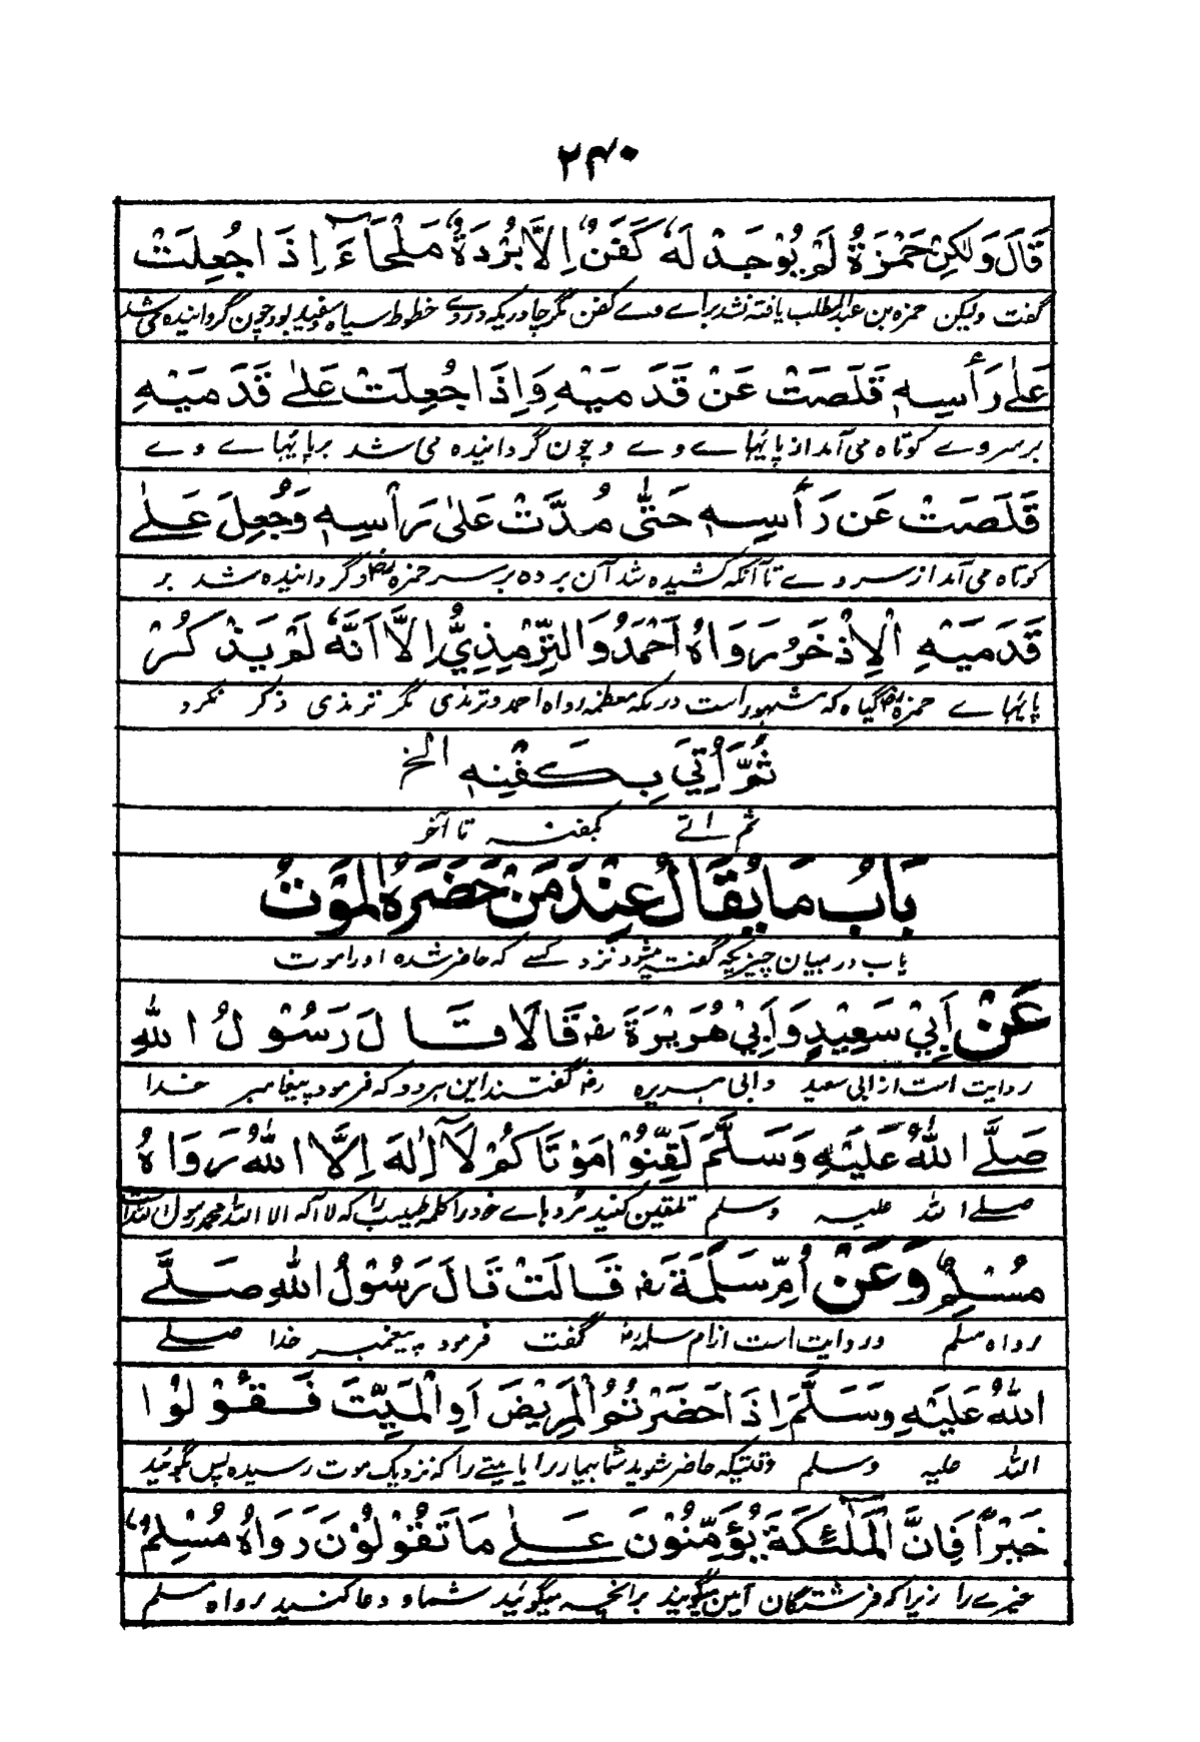 ۲۴۰
قَالَ وَلٰكِنْ حَمْزَةُ لَمْ يُوْجَدْ لَهٗ كَفَنٌ اِلَّا بُرْدَةٌ مَلْحَآءَ اِذَا جُعِلَتْ
گفت ولیکن حمزه بن عبدالمطلب یافته نشد براے وے کفن مگر چادریکه در وے خطوط سیاه وسفید بود چون گردانیده می شد
عَلٰى رَأْسِهٖ قَلَصَتْ عَنْ قَدَمَيْهِ وَاِذَا جُعِلَتْ عَلٰى قَدَمَيْهِ
بر سر وے کوتاه می آمد از پائیهاے وے و چون گردانیده می شد بر پائیهاے وے
قَلَصَتْ عَنْ رَأْسِهٖ حَتّٰى مُدَّتْ عَلٰى رَأْسِهٖ وَجُعِلَ عَلٰى
کوتاه می آمد از سر وے تا آنکه کشیده شد آن برده بر سر حمزه رض وگردانیده شد بر
قَدَمَيْهِ الْاِذْخَرُ رَوَاهُ اَحْمَدُ وَالتِّرْمِذِيُّ اِلَّا اَنَّهٗ لَمْ يَذْكُرْ
پائیهاے حمزه رض گیاه که مشهور است در مکه معظمه رواه احمد وترمذی مگر ترمذی ذکر نکرد
ثُمَّ اُتِيَ بِكَفَنِهٖ الخ
ثم اتے بکفنه تا آخر
بَابُ مَا يُقَالُ عِنْدَ مَنْ حَضَرَهُ الْمَوْتُ
باب در بیان چیزیکه گفته میشود نزد کسے که حاضر شده اورا موت
عَنْ اَبِيْ سَعِيْدٍ وَاَبِيْ هُرَيْرَةَ رض قَالَا قَالَ رَسُوْلُ اللهِ
روایت است از ابی سعید و ابی هریره رض گفتند این هر دو که فرمود پیغامبر خدا
صَلَّے اللهُ عَلَيْهِ وَسَلَّمَ لَقِّنُوْا مَوْتَاكُمْ لَآ اِلٰهَ اِلَّا اللهُ رَوَاهُ
صلے الله علیه وسلم تلقین کنید مردہاے خود را کلمه طیبه را که لا اله الا الله محمد رسول الله است
مُسْلِمٌ وَعَنْ اُمِّ سَلَمَةَ رض قَالَتْ قَالَ رَسُوْلُ اللهِ صَلَّے
رواه مسلم وروایت است از ام سلمه رض گفت فرمود پیغمبر خدا صلے
اللهُ عَلَيْهِ وَسَلَّمَ اِذَا حَضَرْتُمُ الْمَرِيْضَ اَوِ الْمَيِّتَ فَقُوْلُوْا
الله علیه وسلم وقتیکه حاضر شوید شما بیمار را یا میتے را که نزدیک موت رسیده پس بگوئید
خَيْرًا فَاِنَّ الْمَلٰٓئِكَةَ يُؤَمِّنُوْنَ عَلٰى مَا تَقُوْلُوْنَ رَوَاهُ مُسْلِمٌ
خیرے را زیرا که فرشتگان آمین میگویند برانچه میگوئید شما و دعا کنید رواه مسلم